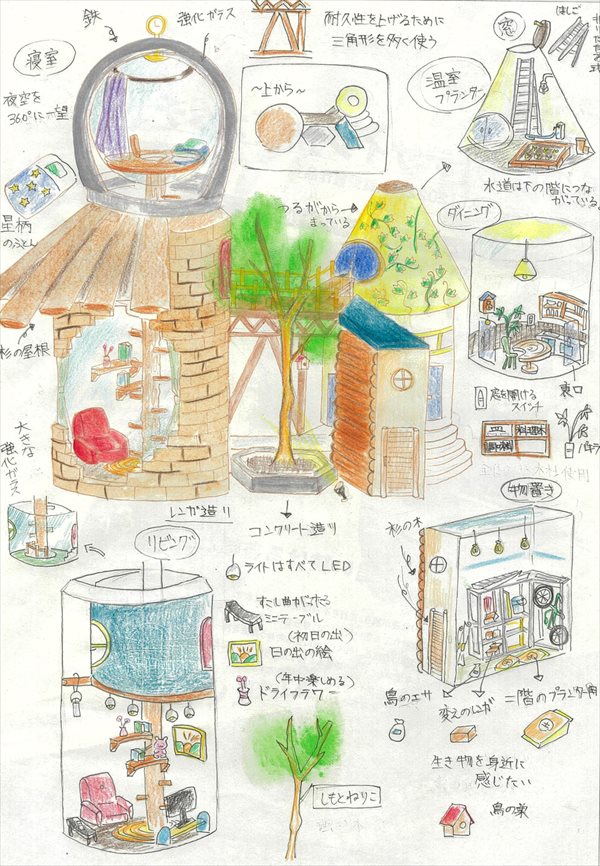 鉄
強化ガラス
耐久性を上げるために
三角形を多く使う
寝室
夜空を
360°に一望
星柄
のふとん
〜上から〜
窓
はしご
温室
プランター
水道は下の階につな
がっている。
つるがから
まっている
ダイニング
杉の屋根
裏口
窓を開ける
スイッチ
パキラ
大きな
強化ガラス
レンガ造り
コンクリート造り
リビング
ライトはすべてLED
すこし曲がってる
ミニテーブル
(初日の出)
日の出の絵
(年中楽しめる)
ドライフラワー
しもとねりこ
物置き
杉の木
鳥のエサ
変えのレンガ
二階のプランター用
生き物を身近に
感じたい
鳥の巣